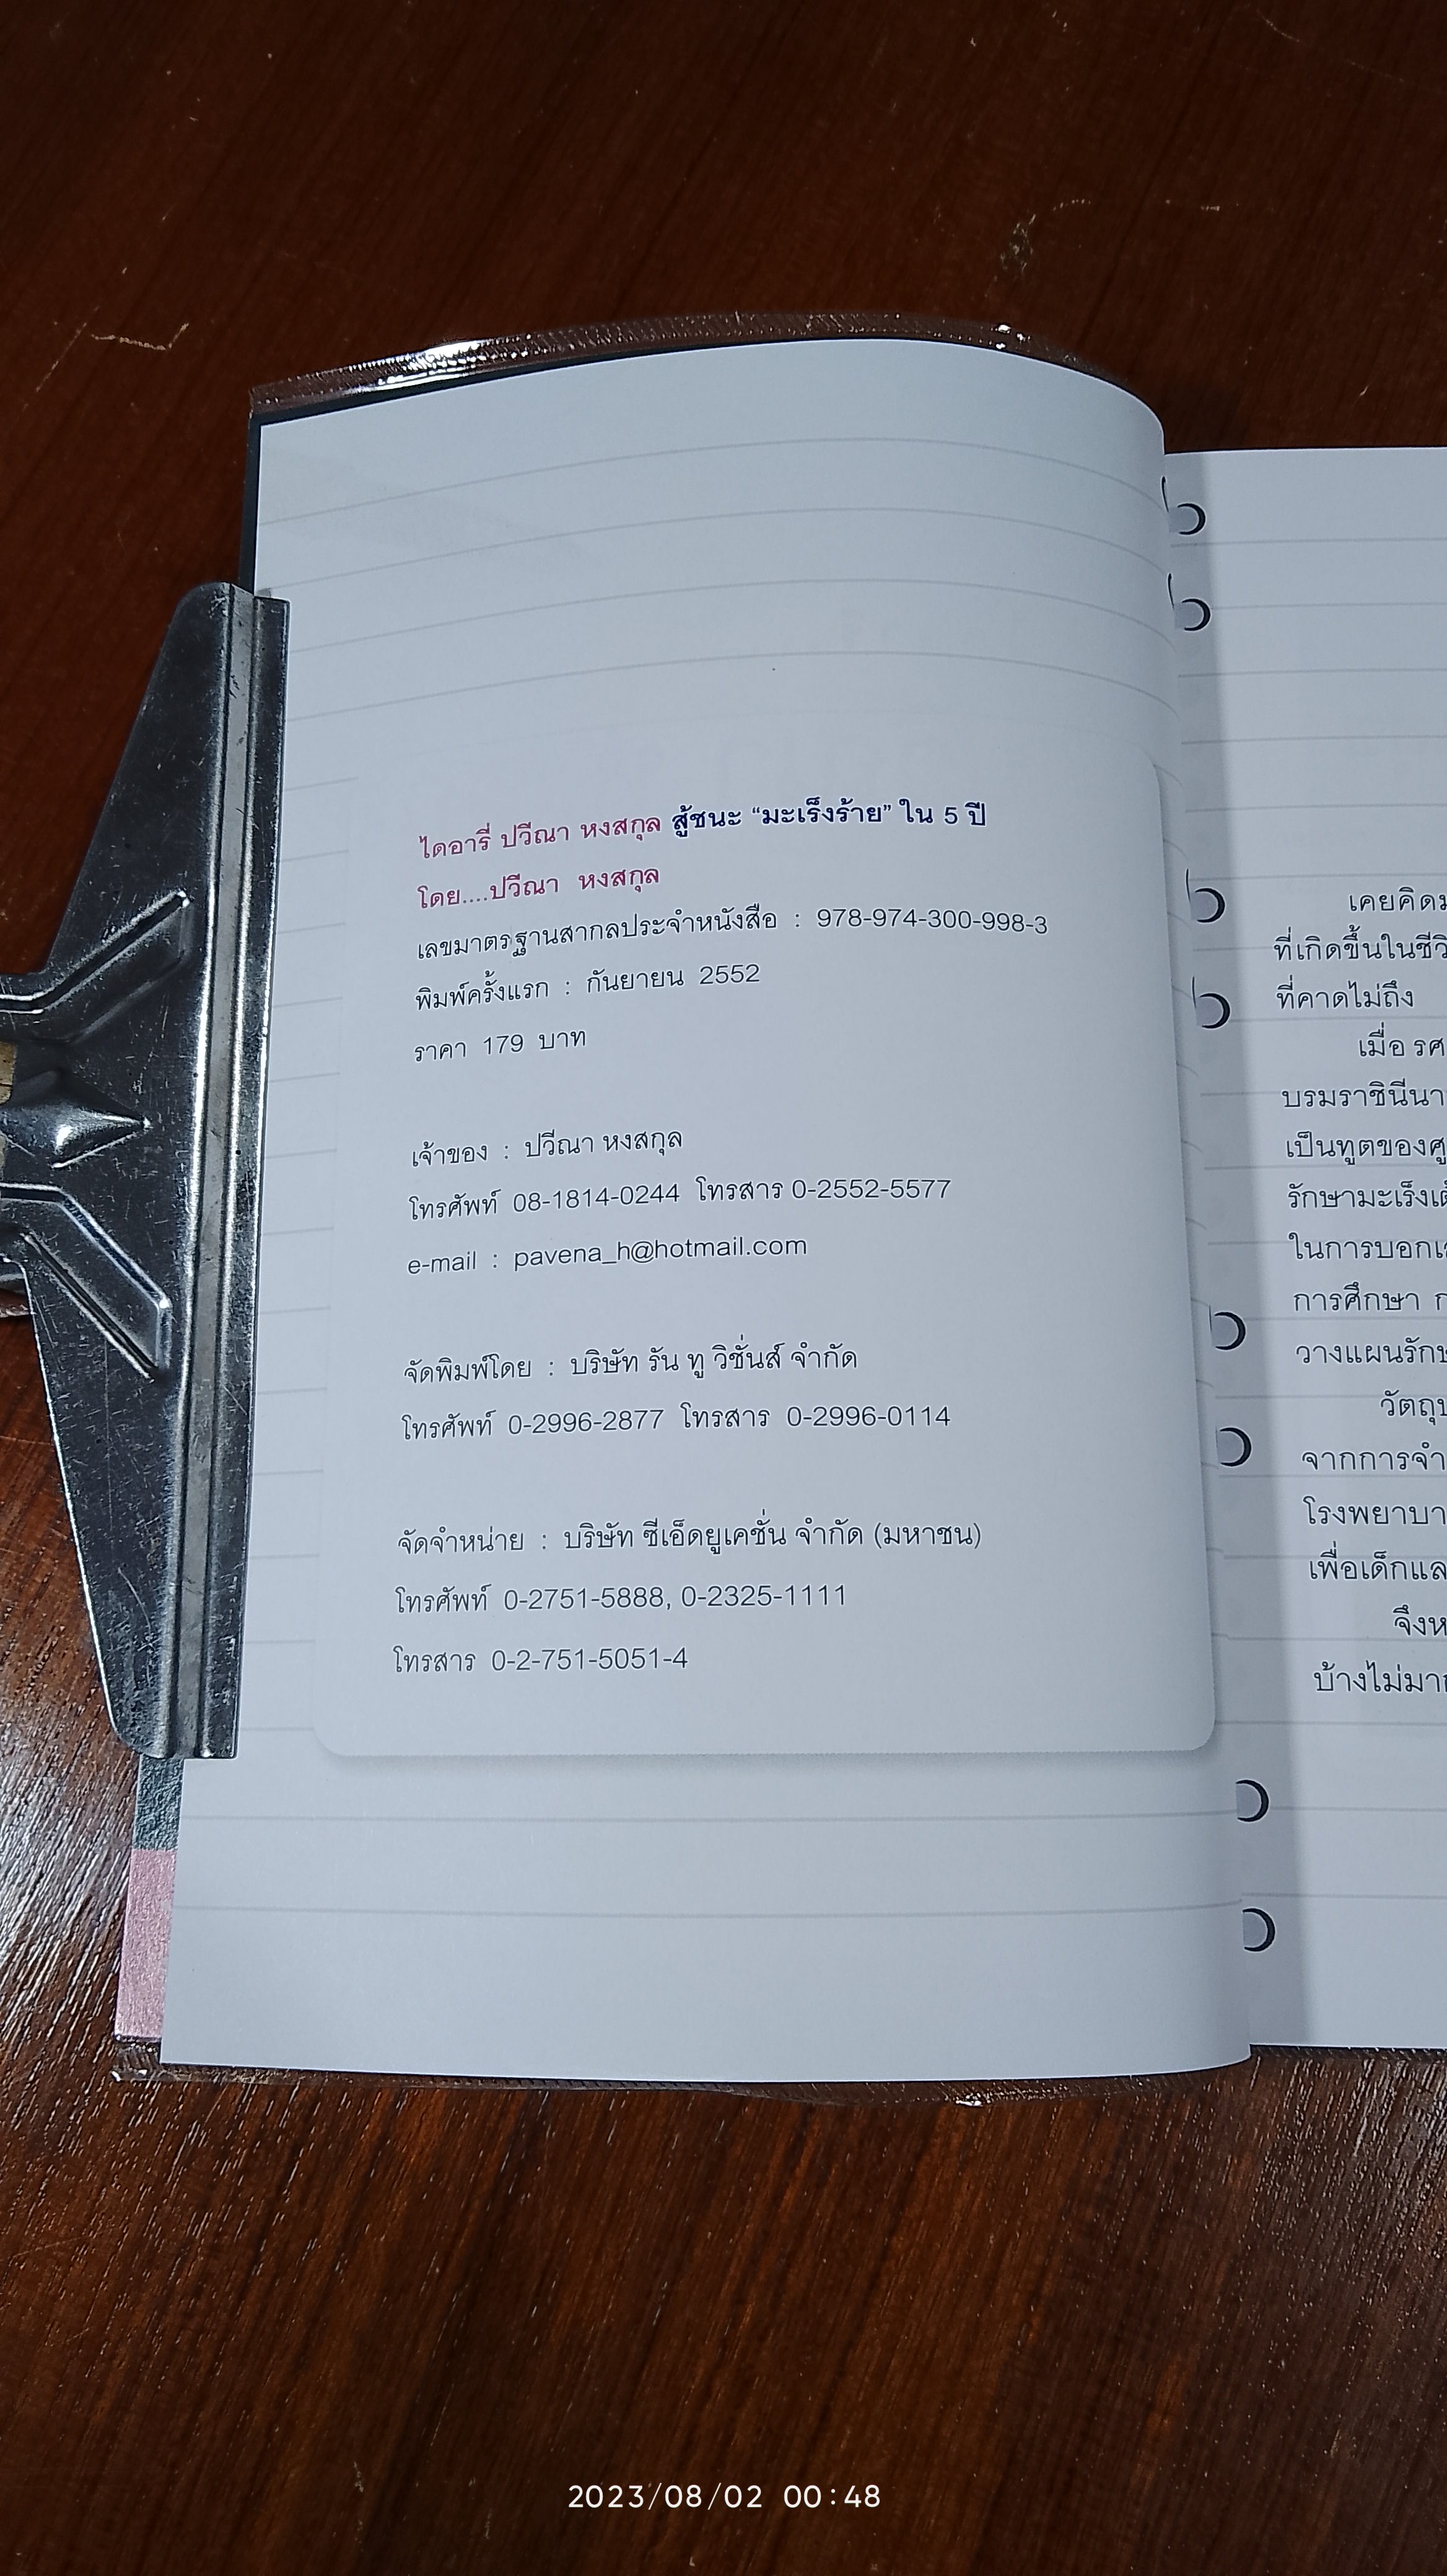 ไดอารี่ ปวีณา หงสกุล สู้ชนะ “มะเร็งร้าย” ใน 5 ปี
โดย....ปวีณา หงสกุล
เลขมาตรฐานสากลประจำหนังสือ : 978-974-300-998-3
พิมพ์ครั้งแรก : กันยายน 2552
ราคา 179 บาท
เจ้าของ : ปวีณา หงสกุล
โทรศัพท์ 08-1814-0244 โทรสาร 0-2552-5577
e-mail : pavena_h@hotmail.com
จัดพิมพ์โดย : บริษัท รัน ทู วิชั่นส์ จำกัด
โทรศัพท์ 0-2996-2877 โทรสาร 0-2996-0114
จัดจำหน่าย : บริษัท ซีเอ็ดยูเคชั่น จำกัด (มหาชน)
โทรศัพท์ 0-2751-5888, 0-2325-1111
โทรสาร 0-2-751-5051-4
เคยคิด
ที่เกิดขึ้นในชีวิ
ที่คาดไม่ถึง
เมื่อ รศ
บรมราชินีนา
เป็นทูตของศู
รักษามะเร็งเต้
ในการบอกเ
การศึกษา ก
วางแผนรักษ
วัตถุป
จากการจำ
โรงพยาบา
เพื่อเด็กแล
จึงห
บ้างไม่มาก
2023/08/02 00:48